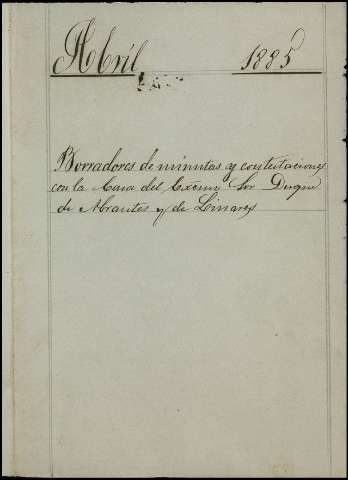 Abril 1885
Borradores de minutas y contestaciones
con la Casa del Excmo Sor Duque
de Abrantes y de Linares